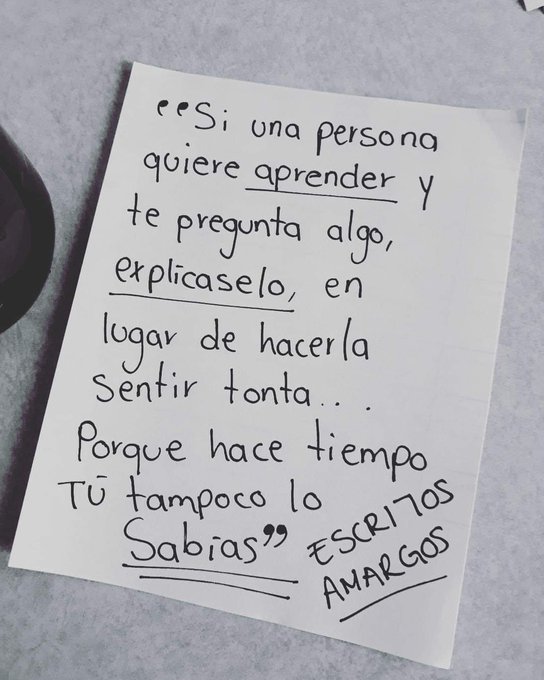 “Si una persona
quiere aprender y
te pregunta algo,
explicaselo, en
lugar de hacerla
sentir tonta...
Porque hace tiempo
TÚ tampoco lo
Sabias”
ESCRITOS
AMARGOS